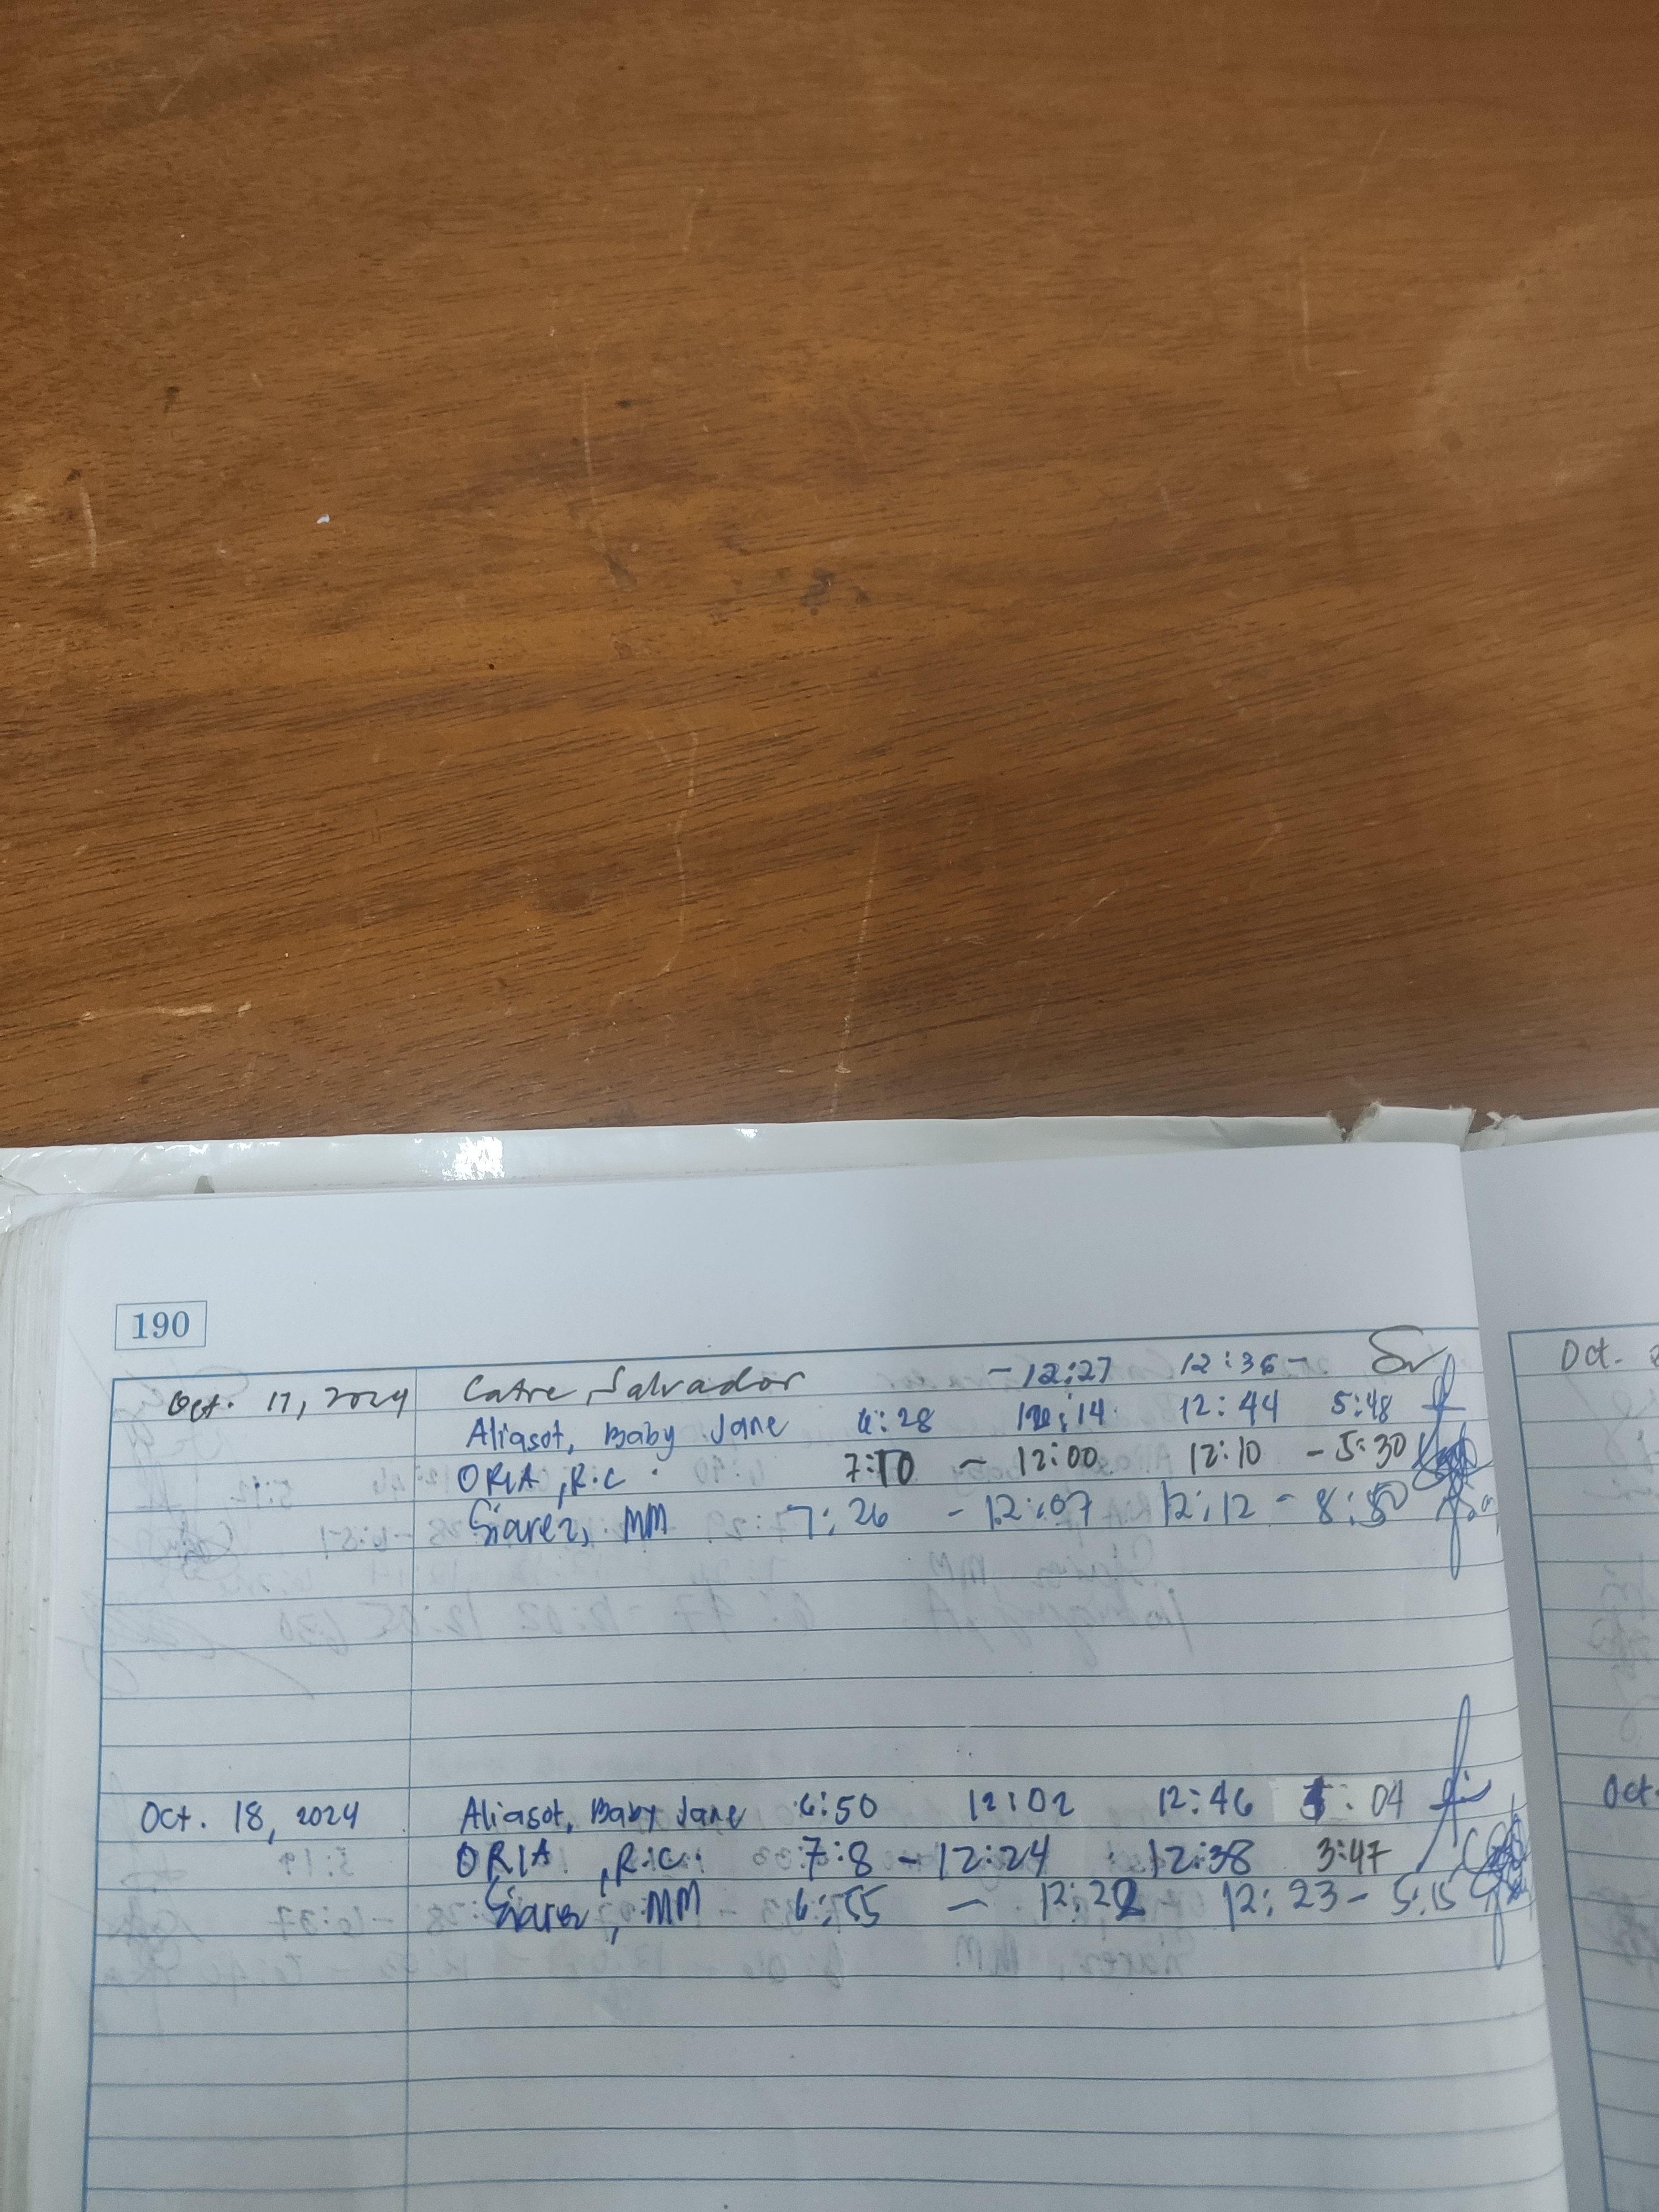 190
Oct. 17, 2024 Catre, Salvador - 12:27 12:36 -
Aliasot, Baby Jane 6:28 12:14 12:44 5:48
ORIA, R.C. 7:10 - 12:00 12:10 - 5:30
Siarez, MM 7:26 - 12:07 12:12 - 8:50
Oct. 18, 2024 Aliasot, Baby Jane 6:50 12:02 12:46 : 04
ORIA, R.C. 7:8 - 12:24 12:38 3:47
Siarez, MM 6:55 - 12:22 12:23 - 5:15
Oct.
Oct.